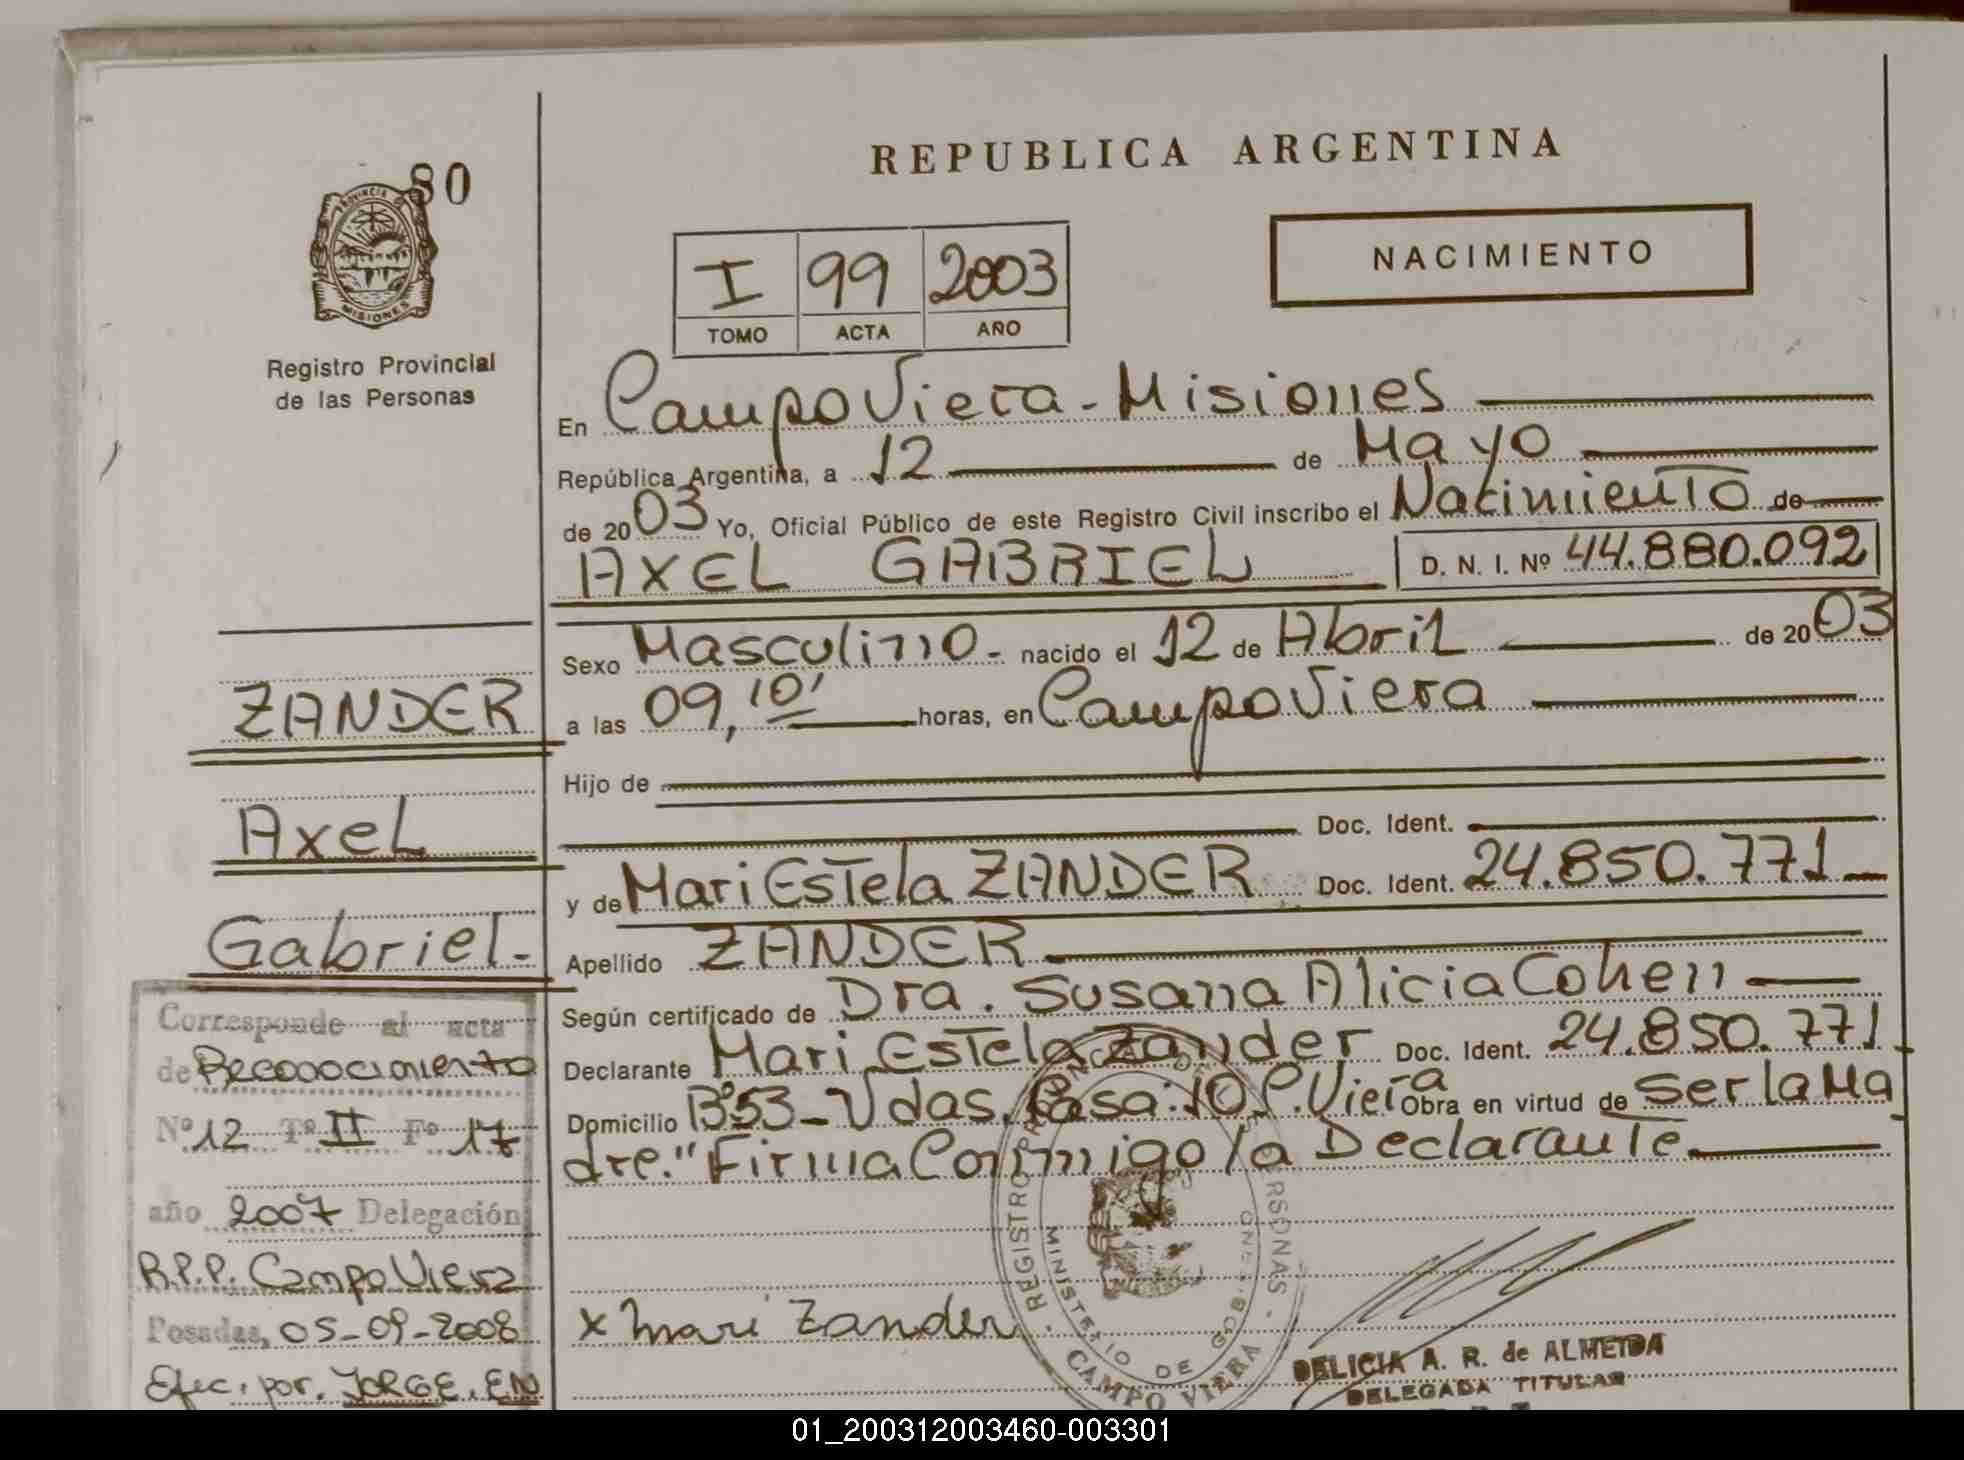 80
PROVINCIA DE
MISIONES
Registro Provincial
de las Personas
ZANDER
Axel
Gabriel-
Corresponde al acta
de Reconocimiento
Nº 12 Tº II Fº 17
año 2007 Delegación
R.P.P. Campo Viera
Posadas, 05-09-2008
Efec. por. JORGE. EN
REPUBLICA ARGENTINA
NACIMIENTO
I 99 2003
TOMO ACTA AÑO
En Campo Viera-Misiones
República Argentina, a 12 de Mayo
de 2003 Yo, Oficial Público de este Registro Civil inscribo el Nacimiento de
AXEL GABRIEL D. N. I. Nº 44.880.092
Sexo Masculino- nacido el 12 de Abril de 2003
a las 09,10' horas, en Campo Viera
Hijo de
Doc. Ident.
y de Mari Estela ZANDER Doc. Ident. 24.850.771
Apellido ZANDER
Según certificado de Dra. Susana Alicia Cohen
Declarante Mari Estela Zander Doc. Ident. 24.850.771
Domicilio Bº53-Vdas. Casa:10 C.Viera Obra en virtud de ser la Ma
dre." Firma Conmigo la Declarante
x Mari Zander
- REGISTRO PROVINCIAL DE LAS PERSONAS -
MINISTERIO DE GOBIERNO
CAMPO VIERA
DELICIA A. R. de ALMEIDA
DELEGADA TITULAR
01_200312003460-003301